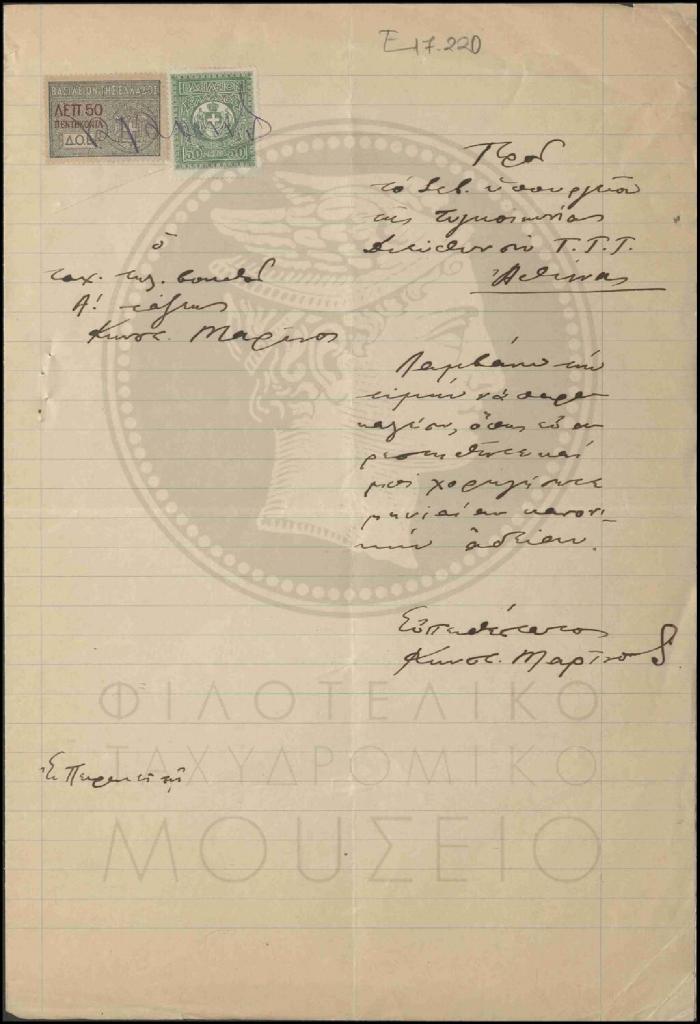 Ε 17.220
ΒΑΣΙΛΕΙΟΝ ΤΗΣ ΕΛΛΑΔΟΣ
ΛΕΠ 50
ΠΕΝΤΗΚΟΝΤΑ
Δ.Ο.Ε.
50 50
Προς
τὸ Σεβ. ὑπουργεῖον
τῆς Συγκοινωνίας
Διεύθυνσιν Τ.Τ.Τ.
Ἀθήνας
ὁ
ταχ. τηλ. βοηθὸς
Α! τάξεως
Κωνστ. Μαρῖνος
Λαμβάνω τὴν
τιμὴν νὰ παρα
καλέσω, ὅπως εὐα
ρεστηθῆτε καὶ
μοὶ χορηγήσητε
μηνιαίαν κανονι
κὴν ἄδειαν.
Εὐπειθέστατος
Κωνστ. Μαρῖνος
Ἐν Πειραιεῖ τῇ
ΦΙΛΟΤΕΛΙΚΟ
ΤΑΧΥΔΡΟΜΙΚΟ
ΜΟΥΣΕΙΟ